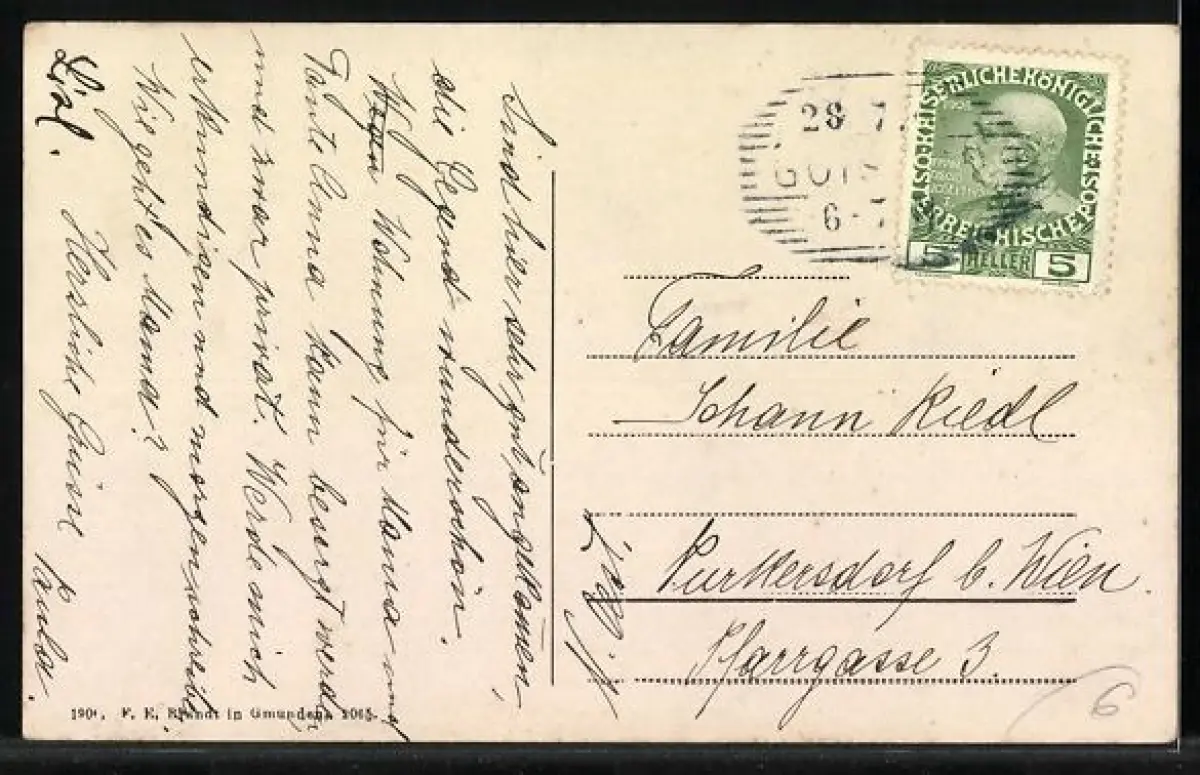 Sind hier sehr gut angekom̄en,
die Gegend wunderschön.
Wg Wohnung für Mama und
Tante Anna kann besorgt werden
und zwar privat. Werde mich
erkundigen und morgen schreiben
Wie geht es Mama?
Herzliche Grüsse Paula.
28 7
6
KAISERLICHE KÖNIGLICHE ÖSTERREICHISCHE POST
5 HELLER 5
Familie
Johann Riedl
Purkersdorf b. Wien
Pfarrgasse 3.
190 . F. E. Brandt in Gmunden. 2065.
6